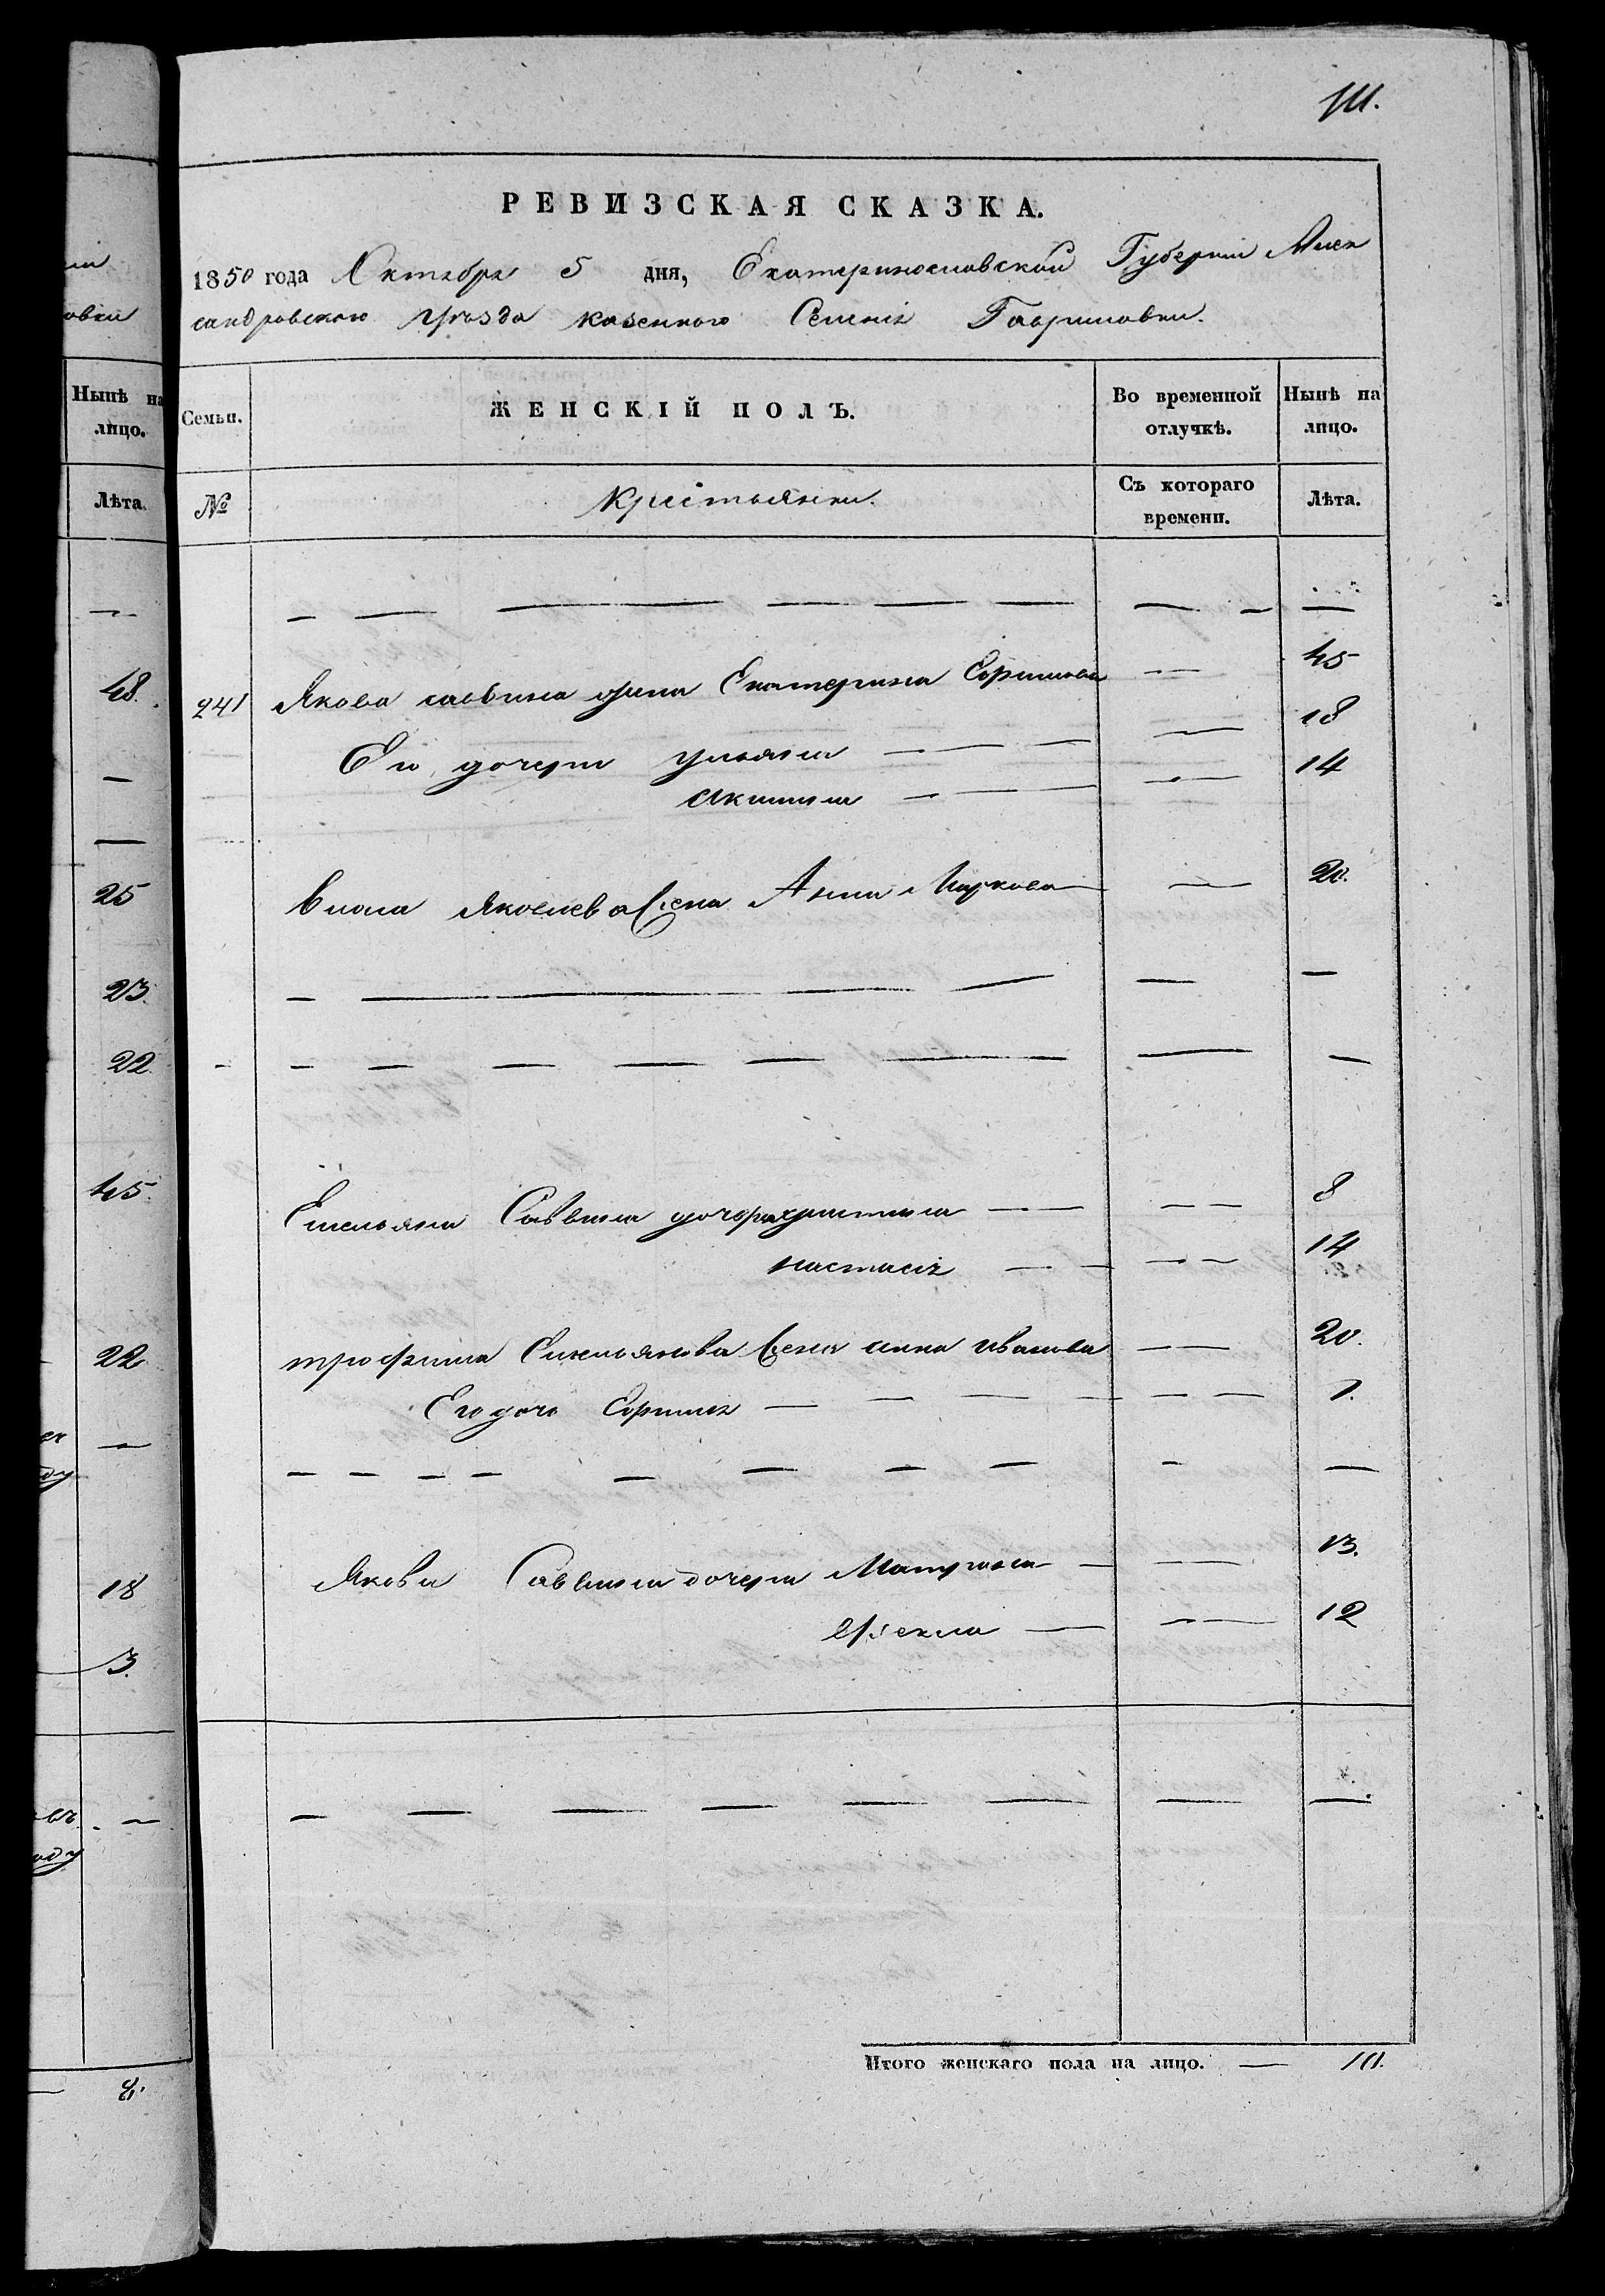 111.
РЕВИЗСКАЯ СКАЗКА.
1850 года Октября 5 дня, Екатеринославской Губернии Алек
сандровского уѣзда казенного Селенія Гавриловки.
Нынѣ на лицо.
Семьи.
ЖЕНСКІЙ ПОЛЪ.
Во временной отлучкѣ.
Нынѣ на лицо.
Лѣта.
№
Крестьянки.
Съ котораго времени.
Лѣта.
48.
241 Якова Саввина жена Екатерина Ефимова — 45
Его дочери Ульяна — 18
Акилина — 14
25
Власа Яковлева жена Анна Маркова — 20.
23.
22
45.
Емельяна Саввина дочери христина — 8
настасія — 14
22
трофима Емельянова жена анна иванова — 20.
Его дочь Ефимія — 1.
18
Якова Саввина дочери Матрина — 13.
Фекла — 12
3.
Итого женскаго пола на лицо. — 10.
8.